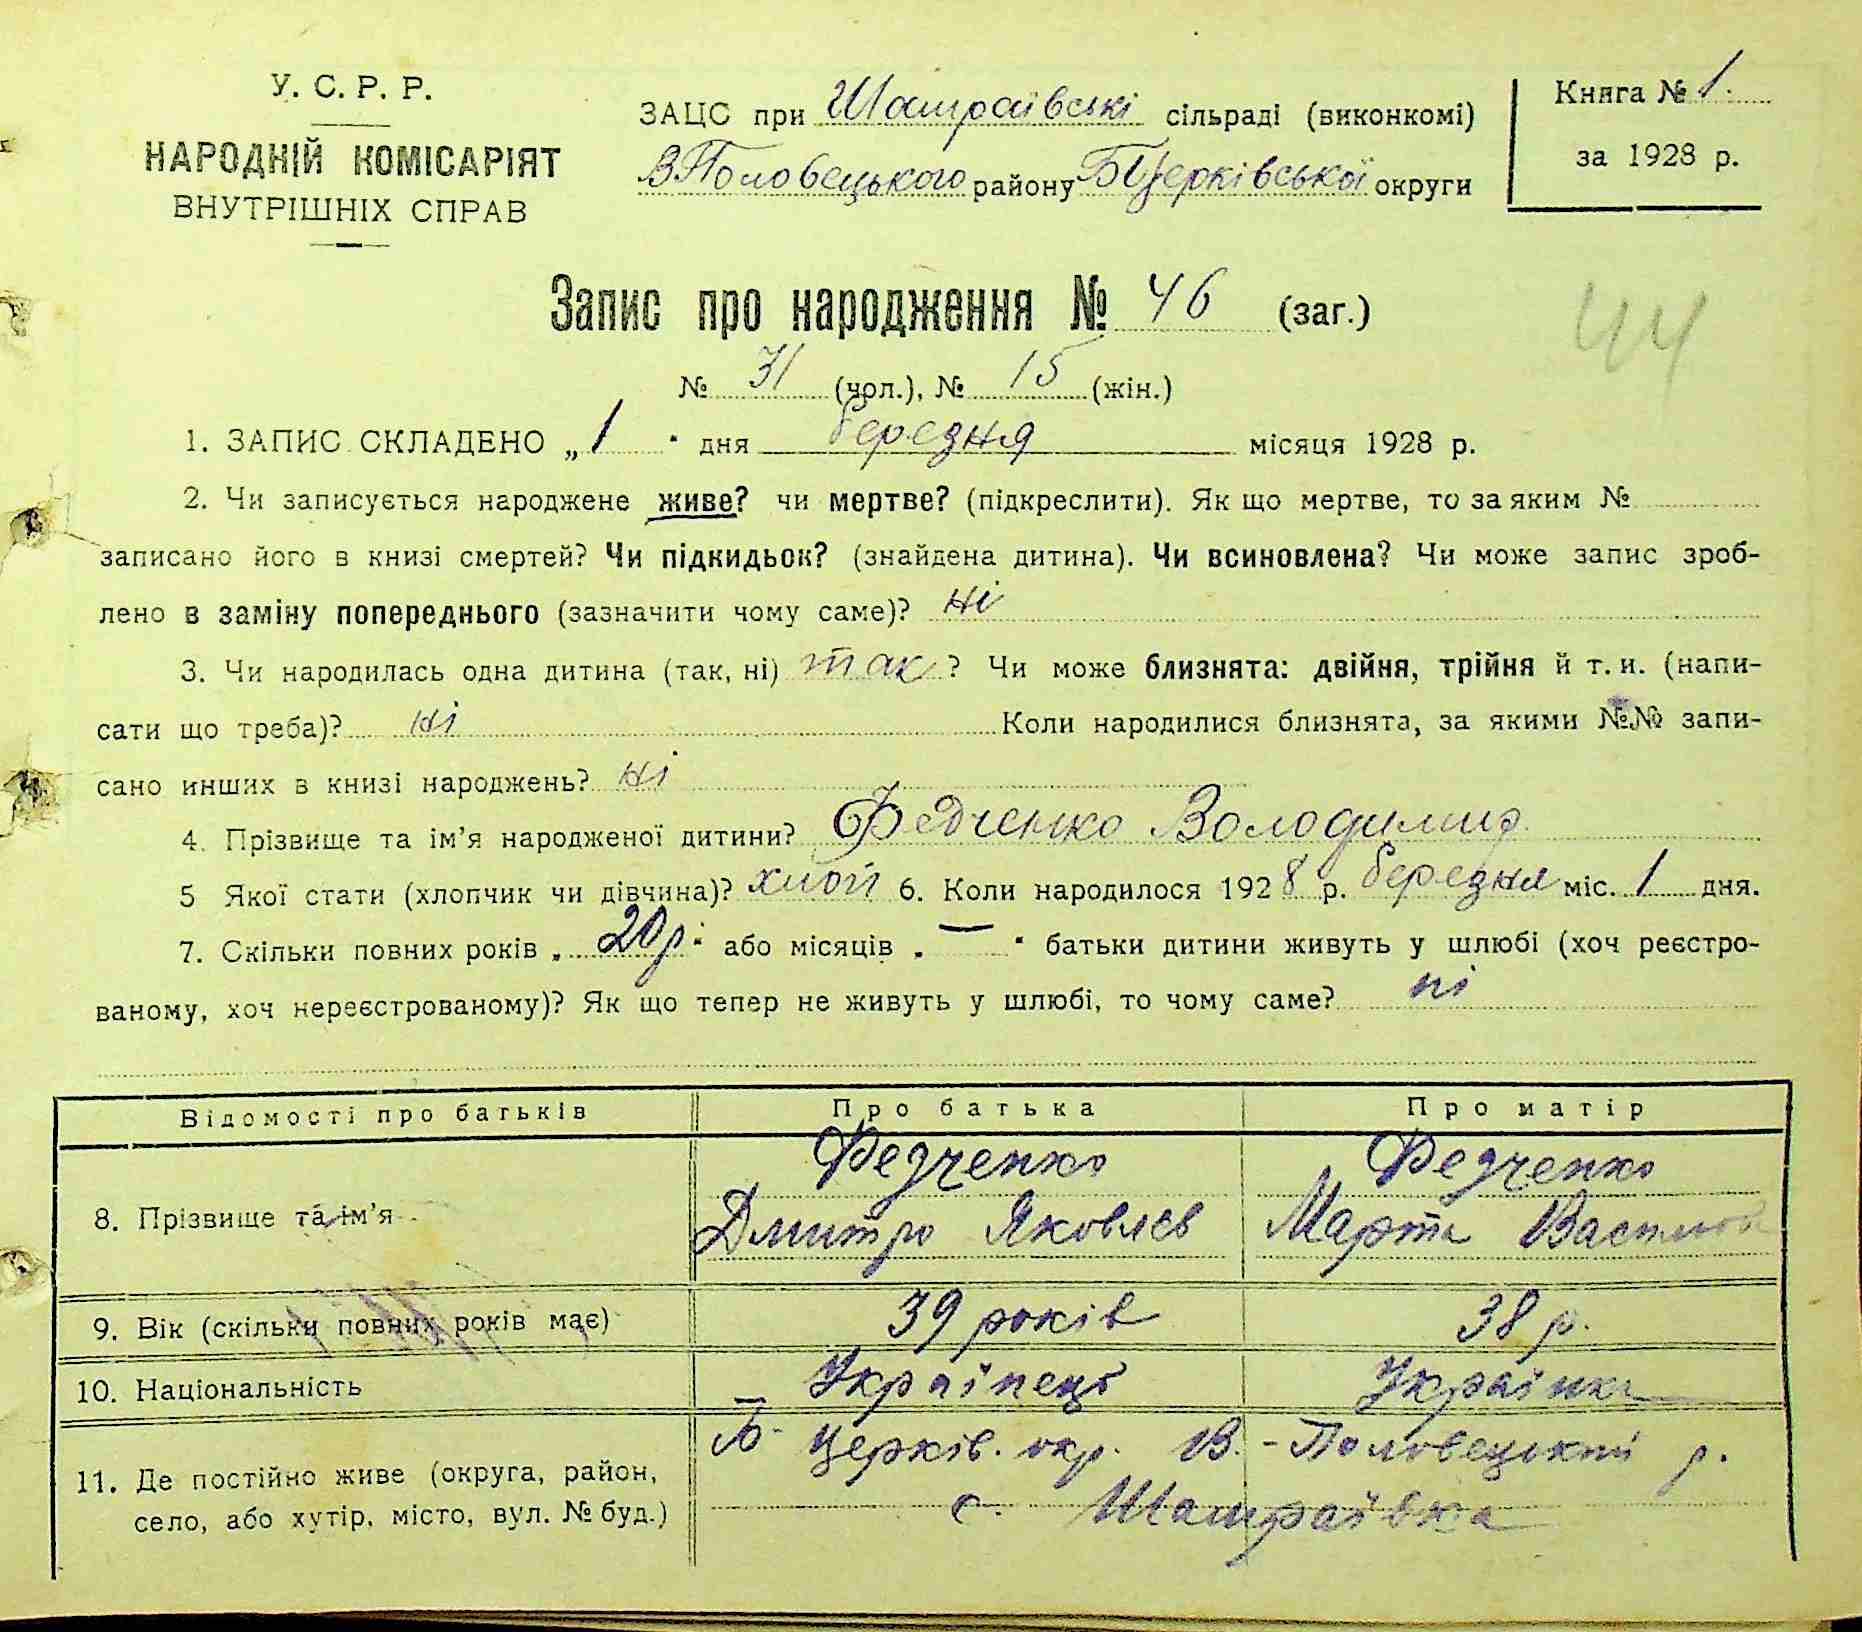 У. С. Р. Р.
НАРОДНІЙ КОМІСАРІЯТ
ВНУТРІШНІХ СПРАВ
ЗАЦС при Шамраївські сільраді (виконкомі)
В Половецького району БЦерківської округи
Книга № 1.
за 1928 р.
Запис про народження № 46 (заг.)
44
№ 31 (чол.), № 15 (жін.)
1. ЗАПИС СКЛАДЕНО „1" дня березня місяця 1928 р.
2. Чи записується народжене живе? чи мертве? (підкреслити). Як що мертве, то за яким №
записано його в книзі смертей? Чи підкидьок? (знайдена дитина). Чи всиновлена? Чи може запис зроб-
лено в заміну попереднього (зазначити чому саме)? ні
3. Чи народилась одна дитина (так, ні) так? Чи може близнята: двійня, трійня й т. и. (напи-
сати що треба)? ні Коли народилися близнята, за якими №№ запи-
сано инших в книзі народжень? ні
4. Прізвище та ім'я народженої дитини? Федченко Володимир
5 Якої стати (хлопчик чи дівчина)? 6. Коли народилося 1928 р. березня міс. 1 дня.
7. Скільки повних років „20р" або місяців „—" батьки дитини живуть у шлюбі (хоч реєстро-
ваному, хоч нереєстрованому)? Як що тепер не живуть у шлюбі, то чому саме? ні
Відомості про батьків Про батька Про матір
8. Прізвище та ім'я Федченко Дмитро Яковлєв Федченко Марта
9. Вік (скільки повних років має) 39 років 38 р.
10. Національність Українець Українка
11. Де постійно живе (округа, район, Б- Церків. окр. В.-Половецький р.
село, або хутір, місто, вул. № буд.) с. Шамраївка